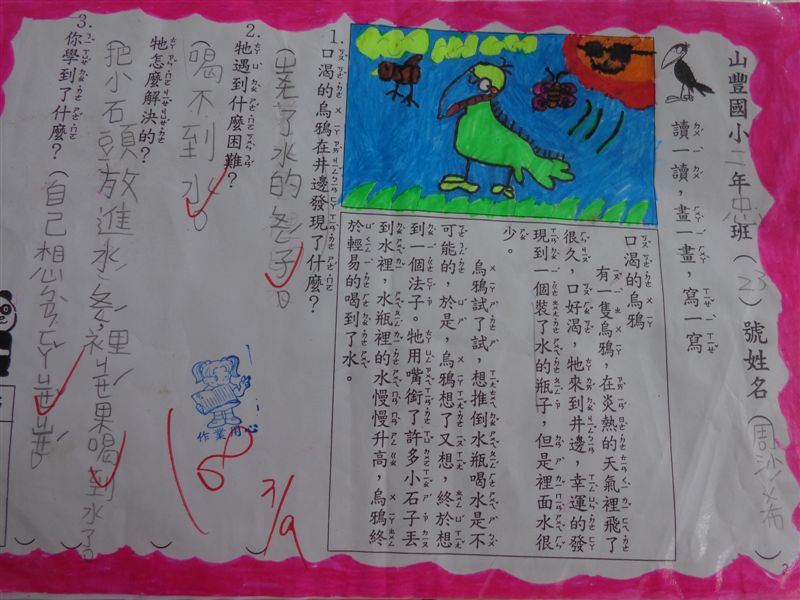 山豐國小一年忠班（23）號姓名（周沙希）
讀一讀，畫一畫，寫一寫
口渴的烏鴉
有一隻烏鴉，在炎熱的天氣裡飛了
很久，口好渴，牠來到井邊，幸運的發
現到一個裝了水的瓶子，但是裡面水很
少。
烏鴉試了試，想推倒水瓶喝水是不
可能的，於是，烏鴉想了又想，終於想
到一個法子。牠用嘴銜了許多小石子丟
到水裡，水瓶裡的水慢慢升高，烏鴉終
於輕易的喝到了水。
1.口渴的烏鴉在井邊發現了什麼？
（裝了水的瓶子）
2.牠遇到什麼困難？
（喝不到水）
牠怎麼解決的？
把小石頭放進水瓶裡，結果喝到水了
3.你學到了什麼？（自己想
作業用心
7/9